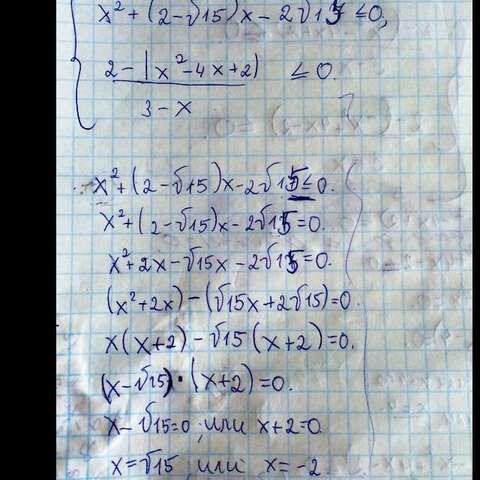 x² + (2 - √15)x - 2√15 ≤ 0,
2 - |x² - 4x + 2|
≤ 0.
3 - x
x² + (2 - √15)x - 2√15 ≤ 0.
x² + (2 - √15)x - 2√15 = 0.
x² + 2x - √15x - 2√15 = 0.
(x² + 2x) - (√15x + 2√15) = 0.
x(x + 2) - √15(x + 2) = 0.
(x - √15) · (x + 2) = 0.
x - √15 = 0 ; или x + 2 = 0
x = √15 ; или x = -2